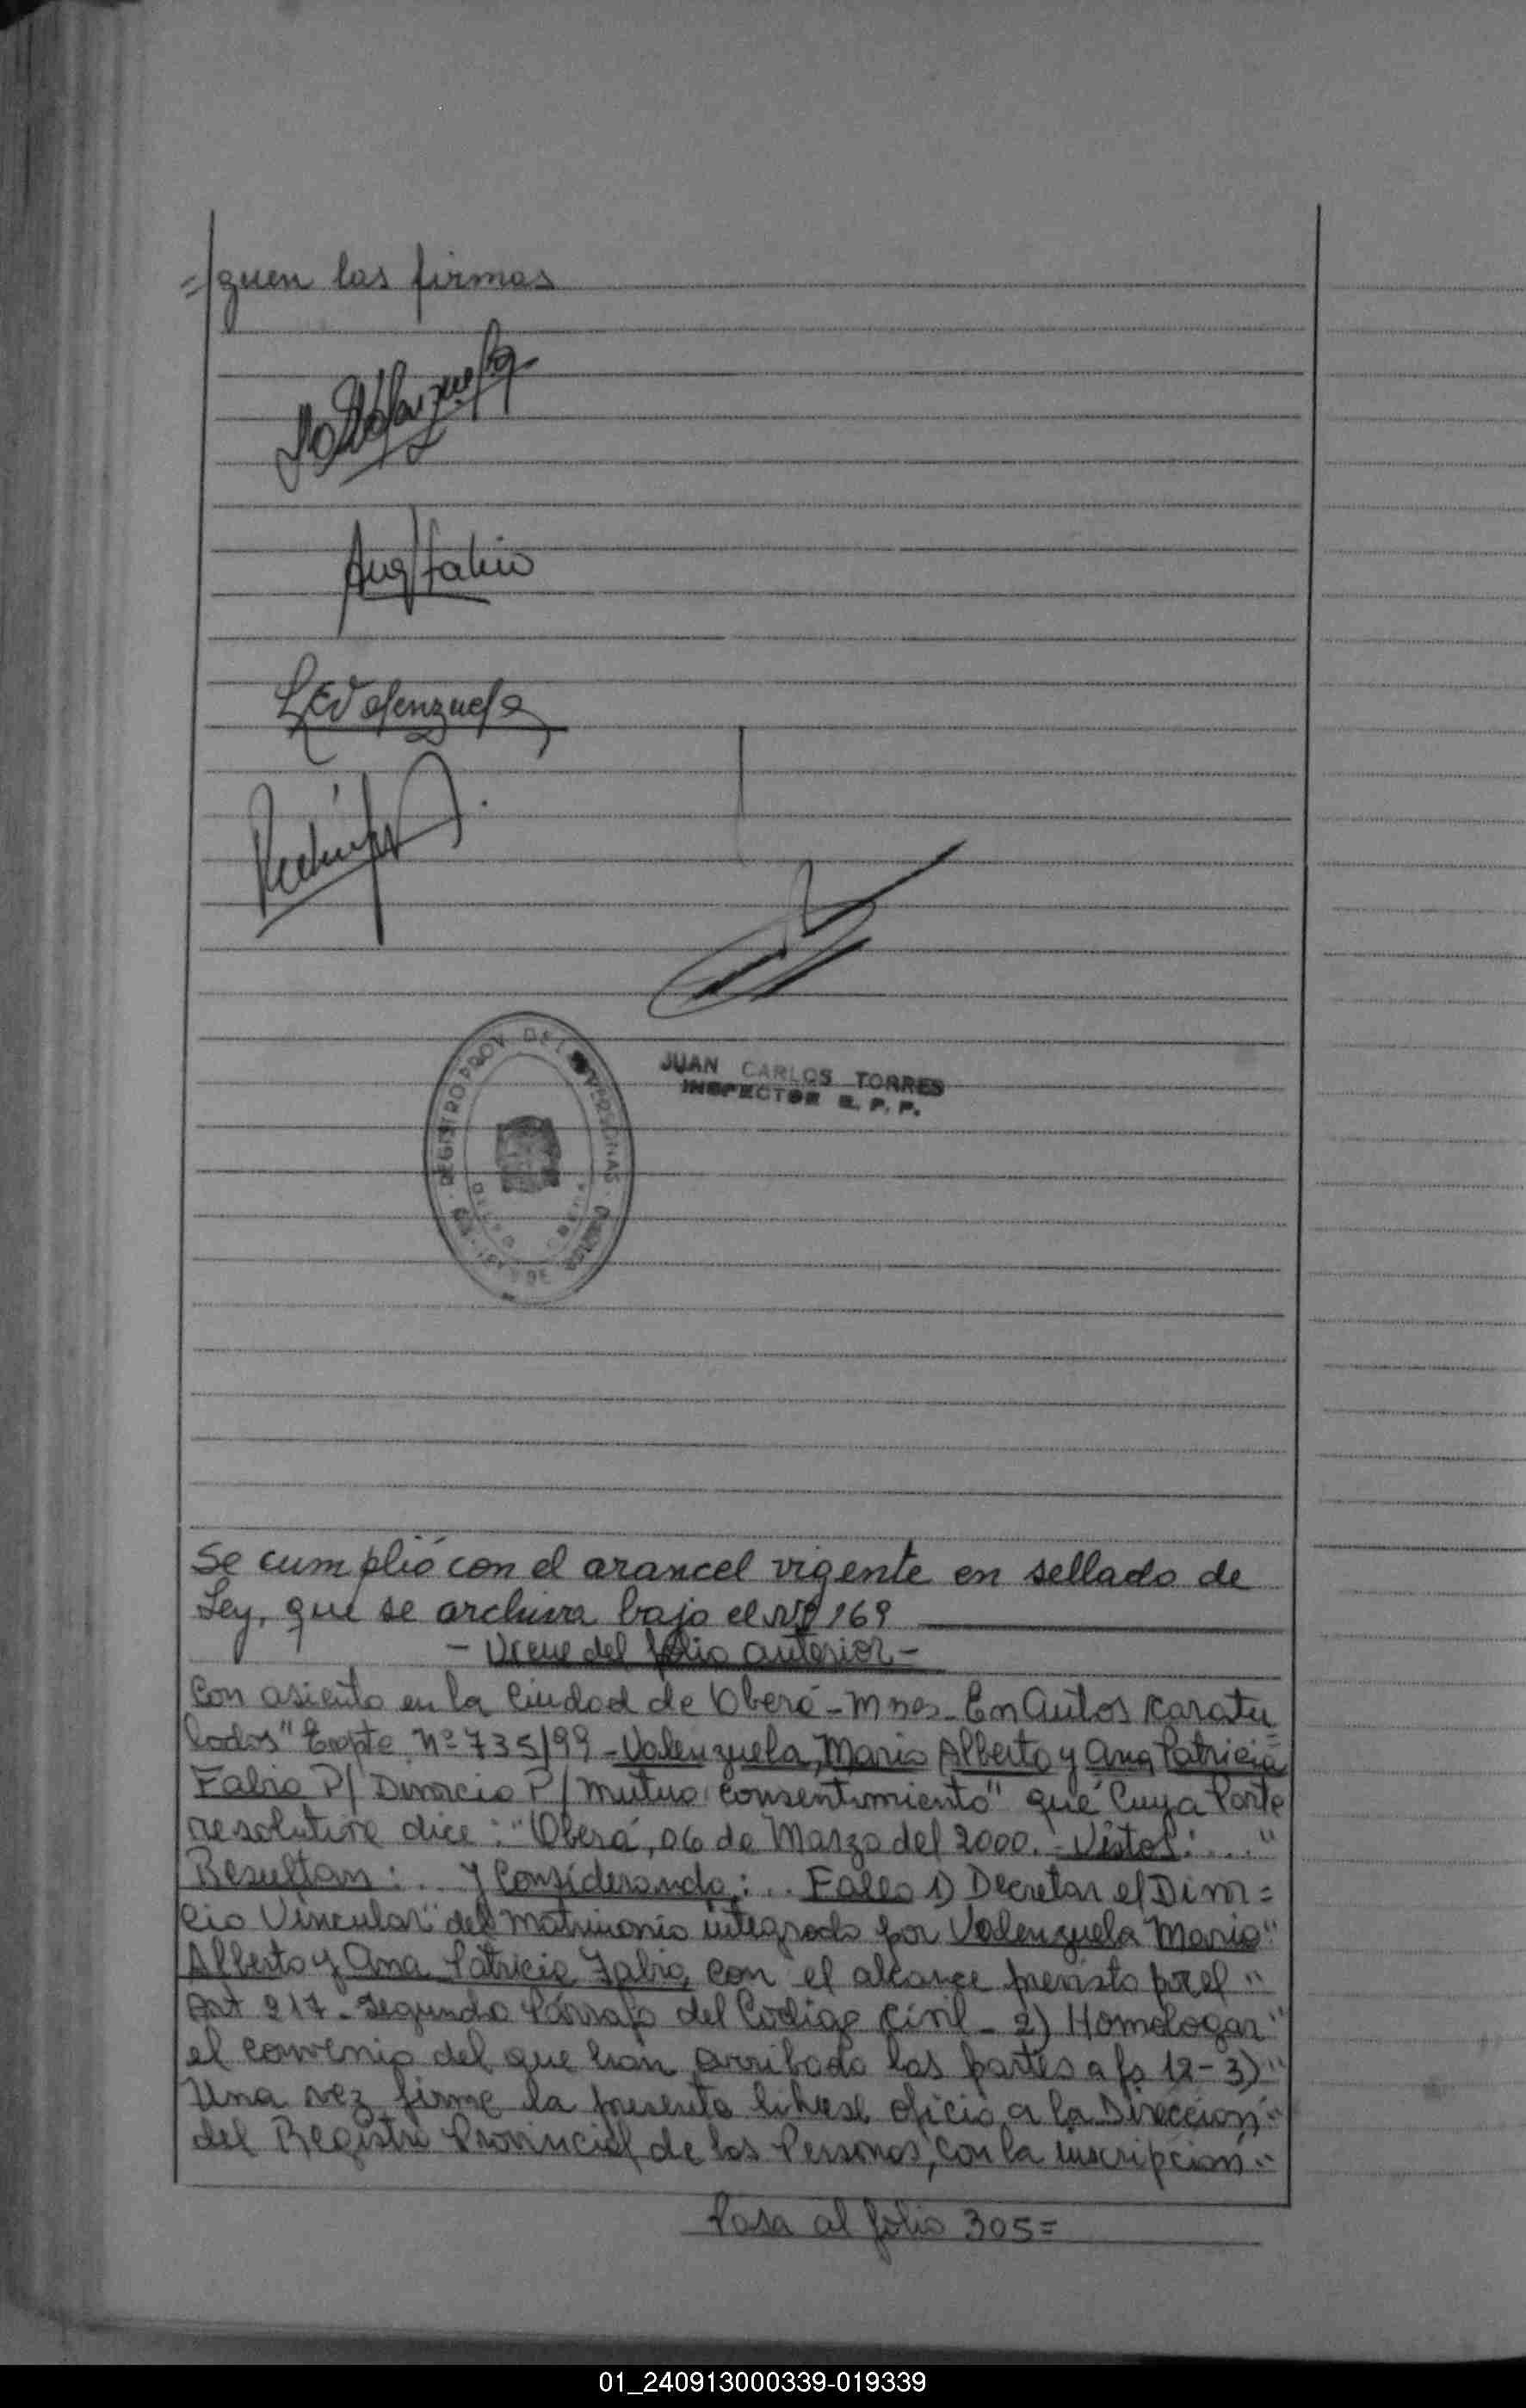 =/guen las firmas
Ana Fabio
L E Valenzuela
REGISTRO PROV. DE LAS PERSONAS
JUAN CARLOS TORRES
INSPECTOR R. P. P.
Se cumplió con el arancel vigente en sellado de
Ley, que se archiva bajo el Nº 169
- Viene del folio anterior -
Con asiento en la Ciudad de Oberá - Mnes - En Autos Caratu=
lados" Expte. Nº 735/99 - Valenzuela, Mario Alberto y Ana Patricia
Fabio P/ Divorcio P/ Mutuo Consentimiento" que Cuya Parte
resolutive dice: "Oberá, 06 de Marzo del 2000. - Vistos: ..."
Resultan: .. Y Considerando: .. Fallo 1) Decretar el Divor=
cio Vincular" del matrimonio integrado por Valenzuela Mario"
Alberto y Ana Patricia Fabio, con el alcance previsto por el "
Art 217 - Segundo Párrafo del Código Civil - 2) Homologar "
el convenio del que han arribado las partes a fs 12 - 3) "
Una vez firme la presente líbrese oficio a la Dirección "
del Registro Provincial de las Personas, con la inscripción "
Pasa al folio 305=